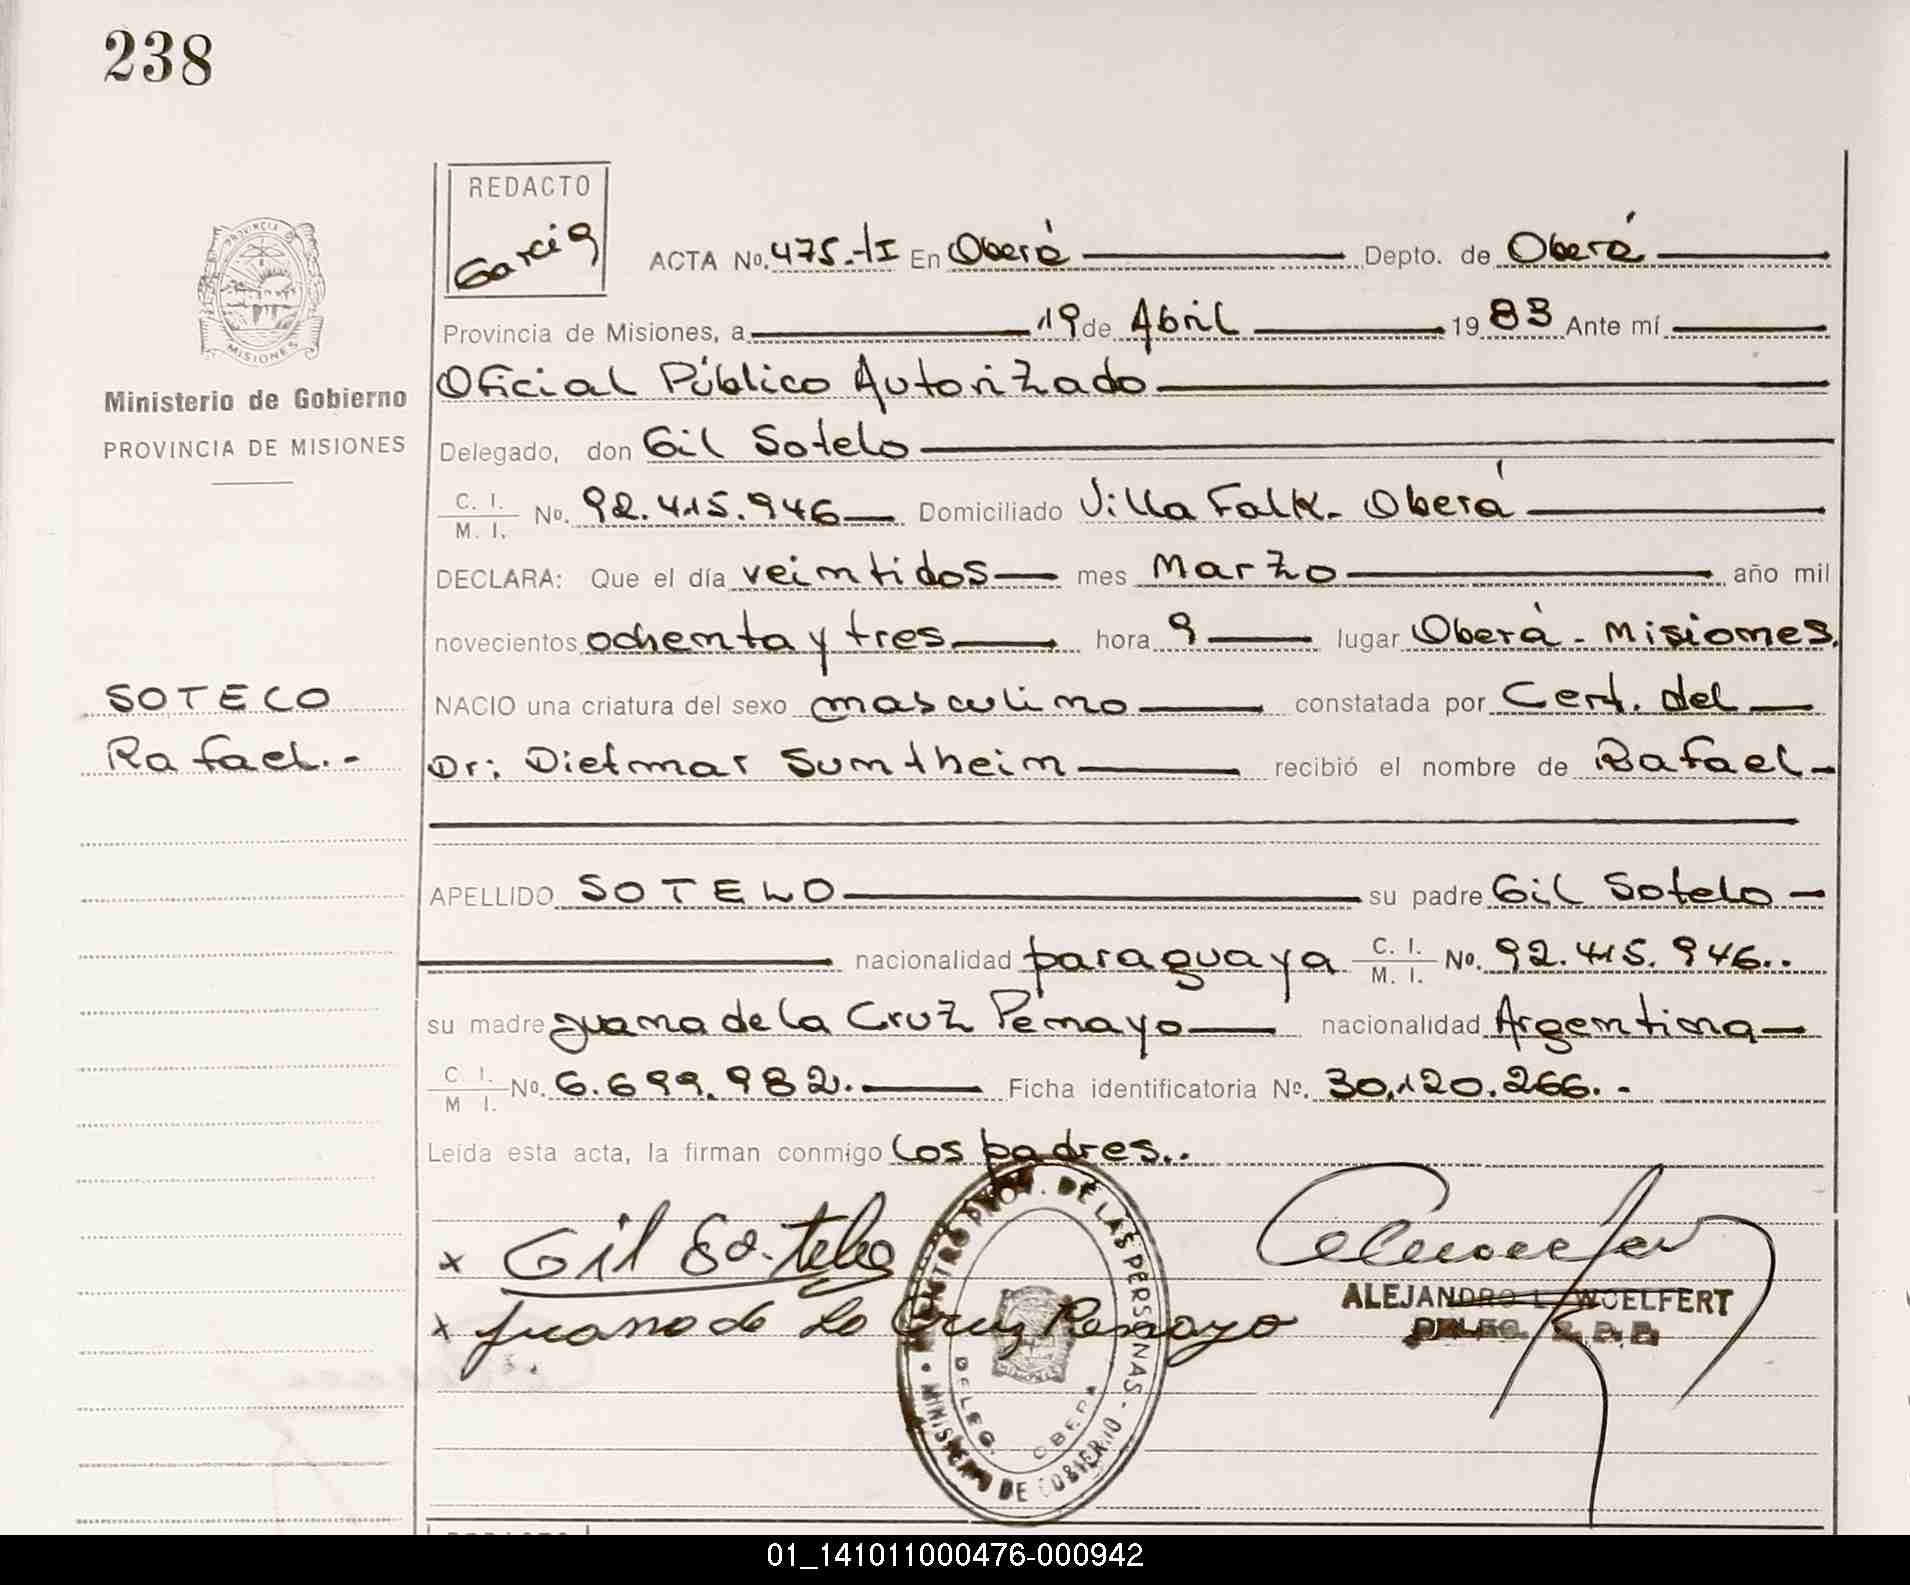 238
REDACTO
Garcia
PROVINCIA D
MISIONES
Ministerio de Gobierno
PROVINCIA DE MISIONES
ACTA No. 475.-I En Oberá Depto. de Oberá
Provincia de Misiones, a 19 de Abril 1983 Ante mí
Oficial Público Autorizado
Delegado, don Gil Sotelo
C. I. / M. I. No. 92.415.946 Domiciliado Villa Falk - Oberá
DECLARA: Que el día veintidos mes Marzo año mil
novecientos ochenta y tres hora 9 lugar Oberá - Misiones.
SOTELO
Rafael.-
NACIO una criatura del sexo masculino constatada por Cert. del
Dr: Dietmar Sumtheim recibió el nombre de Rafael -
APELLIDO SOTELO su padre Gil Sotelo -
nacionalidad paraguaya C. I. / M. I. No. 92.415.946..
su madre Juana de la Cruz Penayo nacionalidad Argentina
C. I. / M I. No. 6.699.982. Ficha identificatoria No. 30.120.266. -
Leída esta acta, la firman conmigo los padres..
x Gil Sotelo
x Juana de la Cruz Penayo
ALEJANDRO L. WOELFERT
PROV. DE LAS PERSONAS - MINISTERIO DE GOBIERNO
DELEG. OBERA
01_141011000476-000942